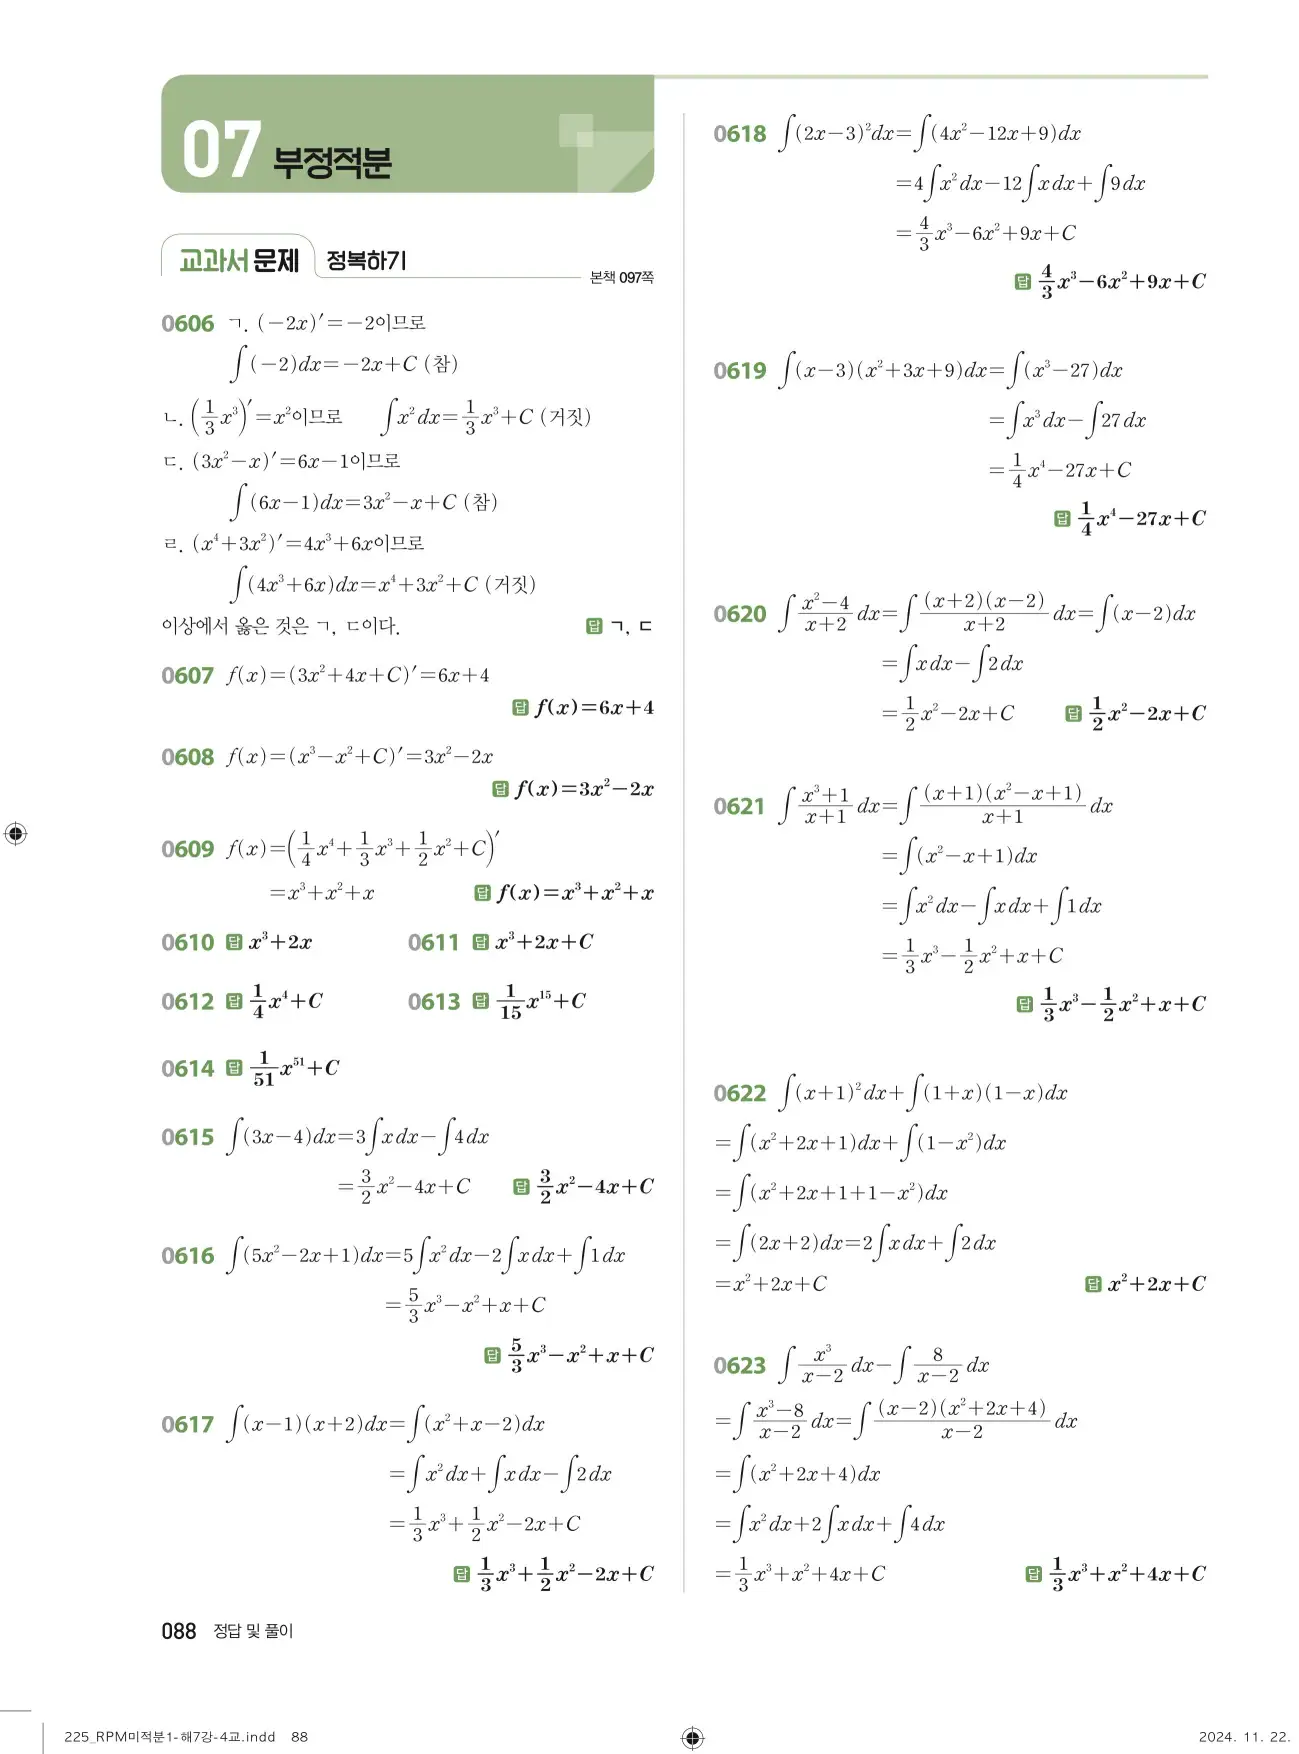 07 부정적분
교과서 문제 정복하기
본책 097쪽
0606 ㄱ. (-2x)′=-2이므로
∫(-2)dx=-2x+C (참)
ㄴ. (1/3 x³)′=x²이므로 ∫x²dx=1/3 x³+C (거짓)
ㄷ. (3x²-x)′=6x-1이므로
∫(6x-1)dx=3x²-x+C (참)
ㄹ. (x⁴+3x²)′=4x³+6x이므로
∫(4x³+6x)dx=x⁴+3x²+C (거짓)
이상에서 옳은 것은 ㄱ, ㄷ이다. 답 ㄱ, ㄷ
0607 f(x)=(3x²+4x+C)′=6x+4
답 f(x)=6x+4
0608 f(x)=(x³-x²+C)′=3x²-2x
답 f(x)=3x²-2x
0609 f(x)=(1/4 x⁴+1/3 x³+1/2 x²+C)′
=x³+x²+x 답 f(x)=x³+x²+x
0610 답 x³+2x 0611 답 x³+2x+C
0612 답 1/4 x⁴+C 0613 답 1/15 x¹⁵+C
0614 답 1/51 x⁵¹+C
0615 ∫(3x-4)dx=3∫xdx-∫4dx
=3/2 x²-4x+C 답 3/2 x²-4x+C
0616 ∫(5x²-2x+1)dx=5∫x²dx-2∫xdx+∫1dx
=5/3 x³-x²+x+C
답 5/3 x³-x²+x+C
0617 ∫(x-1)(x+2)dx=∫(x²+x-2)dx
=∫x²dx+∫xdx-∫2dx
=1/3 x³+1/2 x²-2x+C
답 1/3 x³+1/2 x²-2x+C
0618 ∫(2x-3)²dx=∫(4x²-12x+9)dx
=4∫x²dx-12∫xdx+∫9dx
=4/3 x³-6x²+9x+C
답 4/3 x³-6x²+9x+C
0619 ∫(x-3)(x²+3x+9)dx=∫(x³-27)dx
=∫x³dx-∫27dx
=1/4 x⁴-27x+C
답 1/4 x⁴-27x+C
0620 ∫(x²-4)/(x+2) dx=∫(x+2)(x-2)/(x+2) dx=∫(x-2)dx
=∫xdx-∫2dx
=1/2 x²-2x+C 답 1/2 x²-2x+C
0621 ∫(x³+1)/(x+1) dx=∫(x+1)(x²-x+1)/(x+1) dx
=∫(x²-x+1)dx
=∫x²dx-∫xdx+∫1dx
=1/3 x³-1/2 x²+x+C
답 1/3 x³-1/2 x²+x+C
0622 ∫(x+1)²dx+∫(1+x)(1-x)dx
=∫(x²+2x+1)dx+∫(1-x²)dx
=∫(x²+2x+1+1-x²)dx
=∫(2x+2)dx=2∫xdx+∫2dx
=x²+2x+C 답 x²+2x+C
0623 ∫x³/(x-2) dx-∫8/(x-2) dx
=∫(x³-8)/(x-2) dx=∫(x-2)(x²+2x+4)/(x-2) dx
=∫(x²+2x+4)dx
=∫x²dx+2∫xdx+∫4dx
=1/3 x³+x²+4x+C 답 1/3 x³+x²+4x+C
088 정답 및 풀이
225_RPM미적분1-해7강-4교.indd 88
2024. 11. 22.